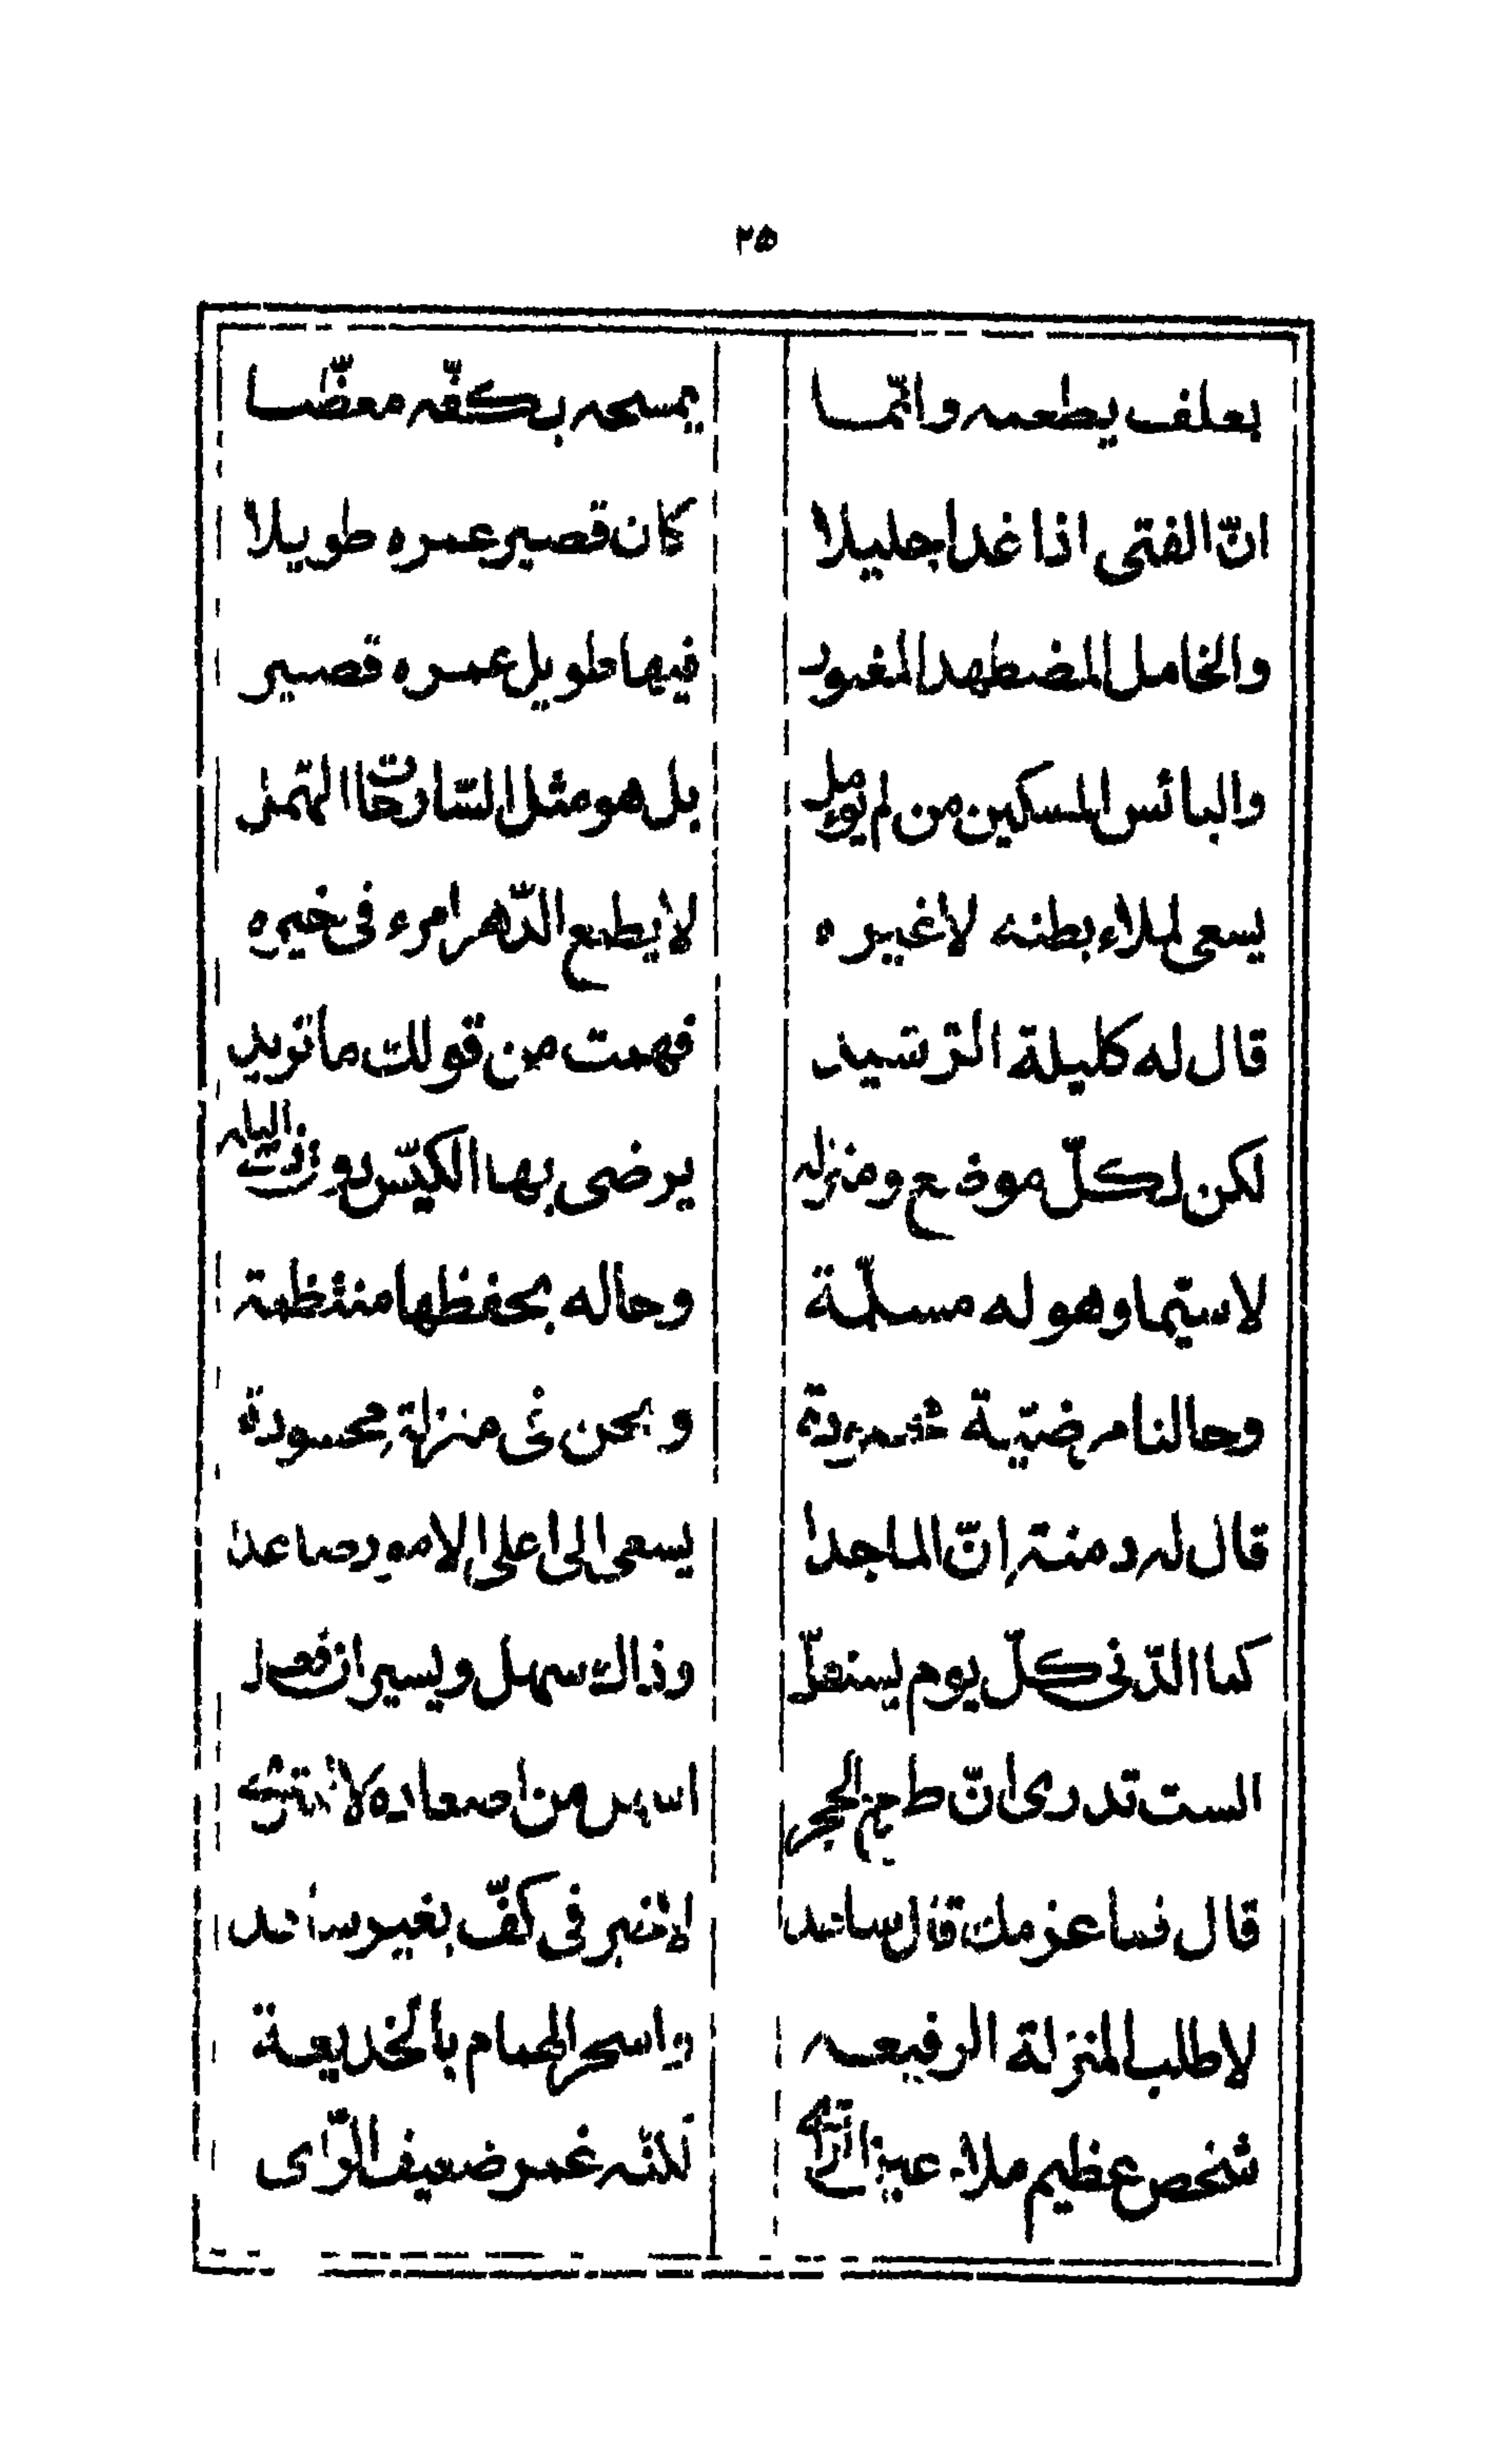 ٢٥
بعلف يطعمه وانّما يمسحه بكفّه معظّما
انّ الفتى اذا غدا جليلا كان قصير عمره طويلا
والخامل المضطهد المغبور فيها طويل عمره قصير
والبائس المسكين من لم يؤمل بل هو مثل السّارحات الهمّل
يسعى لملاء بطنه لا غيره لا يطمع الدّهر امرء فى خيره
قال له كليلة الرّشيد فهمت من قولك ما تريد
لكن لكلّ موضع ومنزله يرضى بها الكيّس
لا سيّما وهو له مسلّمة وحاله بحفظها منتظمة
وحالنا مرضيّة ونحن فى منزلة محسودة
قال له دمنة إنّ الماجدا يسعى الى اعلى الامور صاعدا
كما الدّنى كلّ يوم يستفلّ وذاك سهل ويسير ان فعل
الست تدرى انّ طرح الحجر ايسر من اصعاده
قال فما عزمك قال ساعد لا خير فى كفّ بغير ساعد
لاطلب المنزلة الرفيعه واسحر الهمام بالخديعة
شخص عظيم ملاء عين الرّائى لكنّه غمر ضعيف الرّاى